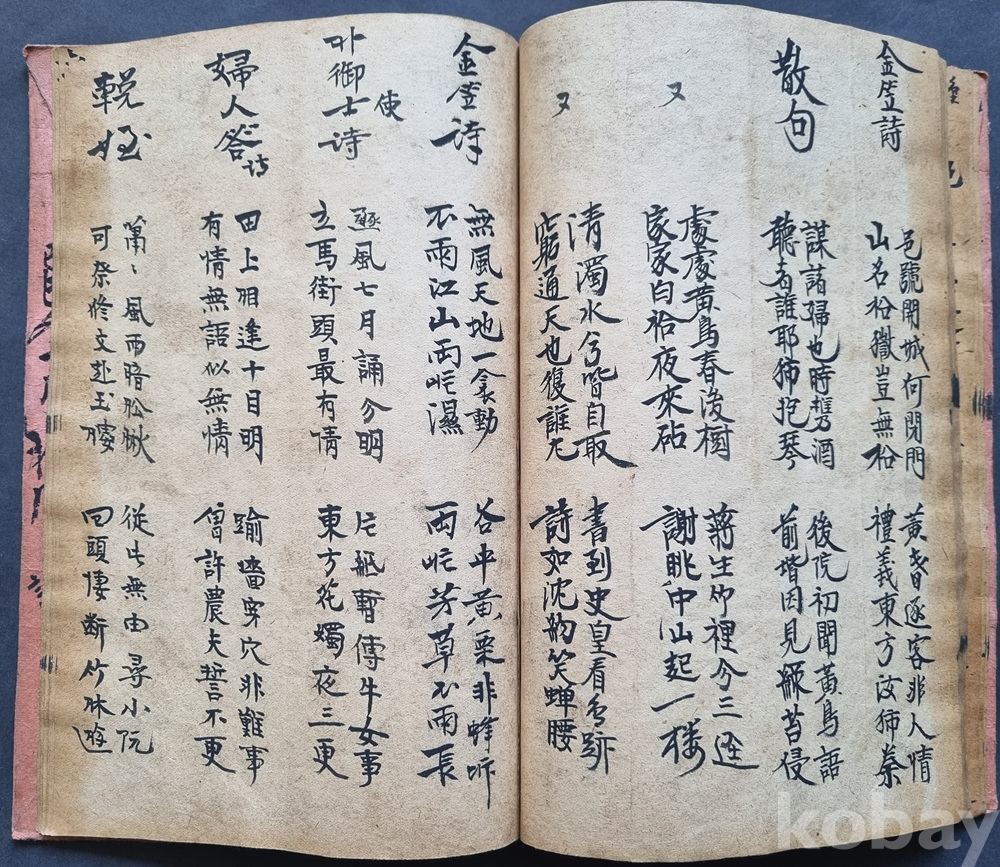 金笠詩
邑號開城何閉門
山名松獄豈無松
黃昏逐客非人情
禮義東方汝獨秦
散句
謀諸婦也時携酒
聽者誰耶獨抱琴
後院初聞黃鳥語
前堦因見綠苔侵
又
處處黃鳥春後樹
家家白袷夜來砧
蔣生竹裡分三逕
謝眺中山起一樓
又
清濁水兮皆自取
窮通天也復誰尤
書到史皇看鳥跡
詩如沈約笑蟬腰
金笠詩
無風天地一衾動
不雨江山兩濕
谷平黃栗非蜂
兩芳草不雨長
外御士詩
使
逐風七月誦分明
立馬街頭最有情
片紙暫傳牛女事
東方花燭夜三更
婦人答詩
田上相逢十目明
有情無語似無情
踰墻穿穴非難事
曾許農夫誓不更
輓姪
風雨暗松楸
可祭修文赴玉樓
從此無由尋小阮
回頭悽斷竹林遊
kobay